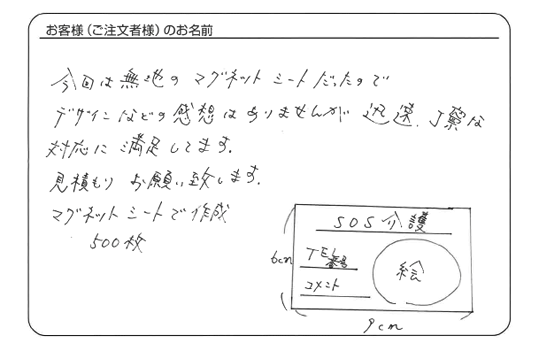 お客様（ご注文者様）のお名前
今回は無地のマグネットシートだったので
デザインなどの感想はありませんが 迅速、丁寧な
対応に満足してます。
見積もりお願い致します。
マグネットシートで作成
500枚
SOS介護
TEL
番号
コメント
絵
6cm
9cm